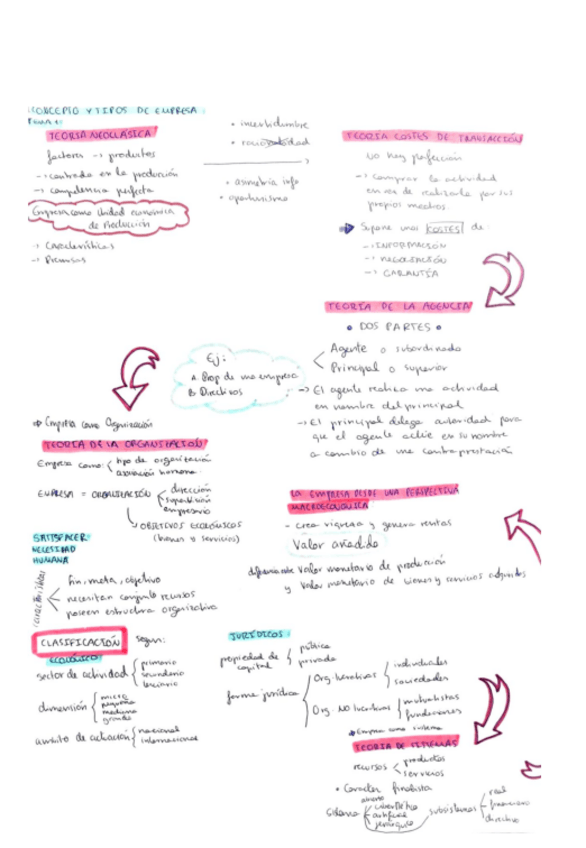 CONCEPTO Y TIPOS DE EMPRESA:
TEMA 1:
TEORÍA NEOCLÁSICA
factores → productos
→ centrada en la producción
→ competencia perfecta
Empresa como Unidad económica
de Producción
→ Características
→ Premisas
• incertidumbre
• racionalidad
• asimetría info
• oportunismo
TEORÍA COSTES DE TRANSACCIÓN
No hay perfección
→ comprar la actividad
en vez de realizarla por sus
propios medios.
Supone unos COSTES de:
→ INFORMACIÓN
→ NEGOCIACIÓN
→ GARANTÍA
TEORÍA DE LA AGENCIA
• DOS PARTES •
Agente o subordinado
Principal o superior
→ El agente realiza una actividad
en nombre del principal
→ El principal delega autoridad para
que el agente actúe en su nombre
a cambio de una contraprestación
Ej:
A Prop de una empresa
B Directivos
Empresa como Organización
TEORÍA DE LA ORGANIZACIÓN
Empresa como: tipo de organización
asociación humana.
EMPRESA = ORGANIZACIÓN
dirección
supervisión
empresario
OBJETIVOS ECONÓMICOS
(bienes o servicios)
SATISFACER
NECESIDAD
HUMANA
características
fin, meta, objetivo
necesitan conjunto recursos
poseen estructura organizativa
LA EMPRESA DESDE UNA PERSPECTIVA
MACROECONÓMICA
- crea riqueza y genera rentas
Valor añadido
diferencia entre valor monetario de producción
y valor monetario de bienes y servicios adquiridos
CLASIFICACIÓN según:
ECONÓMICO:
sector de actividad
primario
secundario
terciario
dimensión
micro
pequeña
mediana
grande
ámbito de actuación
nacional
internacional
JURÍDICOS:
propiedad de
capital
pública
privada
forma jurídica
Org. lucrativas
individuales
sociedades
Org. No lucrativas
mutualistas
fundaciones
Empresa como sistema
TEORÍA DE SISTEMAS
recursos
productos
servicios
• Carácter finalista
Sistema
abierto
cibernético
artificial
jerárquico
subsistemas
real
financiero
directivo